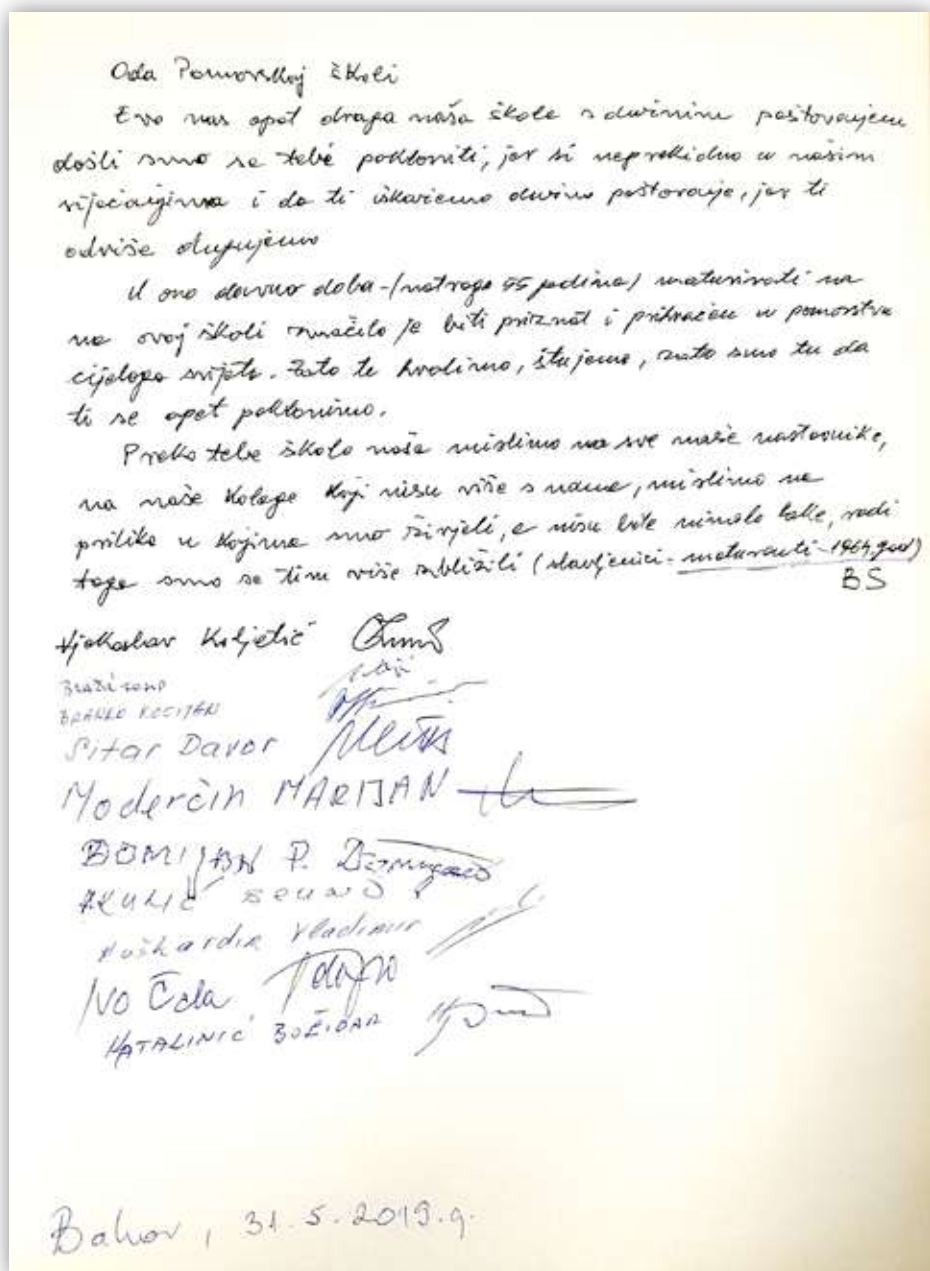 Oda Pomorskoj školi
Evo nas opet draga naša škole s dužnim poštovanjem
došli smo se tebe pokloniti, jer si neprekidno u našim
sjećanjima i da ti iskažemo dužno poštovanje, jer ti
odviše dugujemo
U ono davno doba - (natrag 55 godina) maturirati na
na ovoj školi značilo je biti priznat i prihvaćen u pomorstvu
cijeloga svijeta. Zato te hvalimo, štujemo, zato smo tu da
ti se opet poklonimo.
Preko tebe školo naša mislimo na sve naše nastavnike,
na naše kolege koji nisu više s nama, mislimo na
prilike u kojima smo živjeli, a nisu bile nimalo lake, radi
toga smo se tim više zbližili (slavljenici - maturanti - 1964. god)
BS
Vjekoslav
BRANKO KOCIJAN
Sitar Davor
Moderčin MARIJAN
DOMIJAN P.
Vladimir
Ivo Čala
KATALINIĆ BOŽIDAR
Bakar, 31. 5. 2019. g.